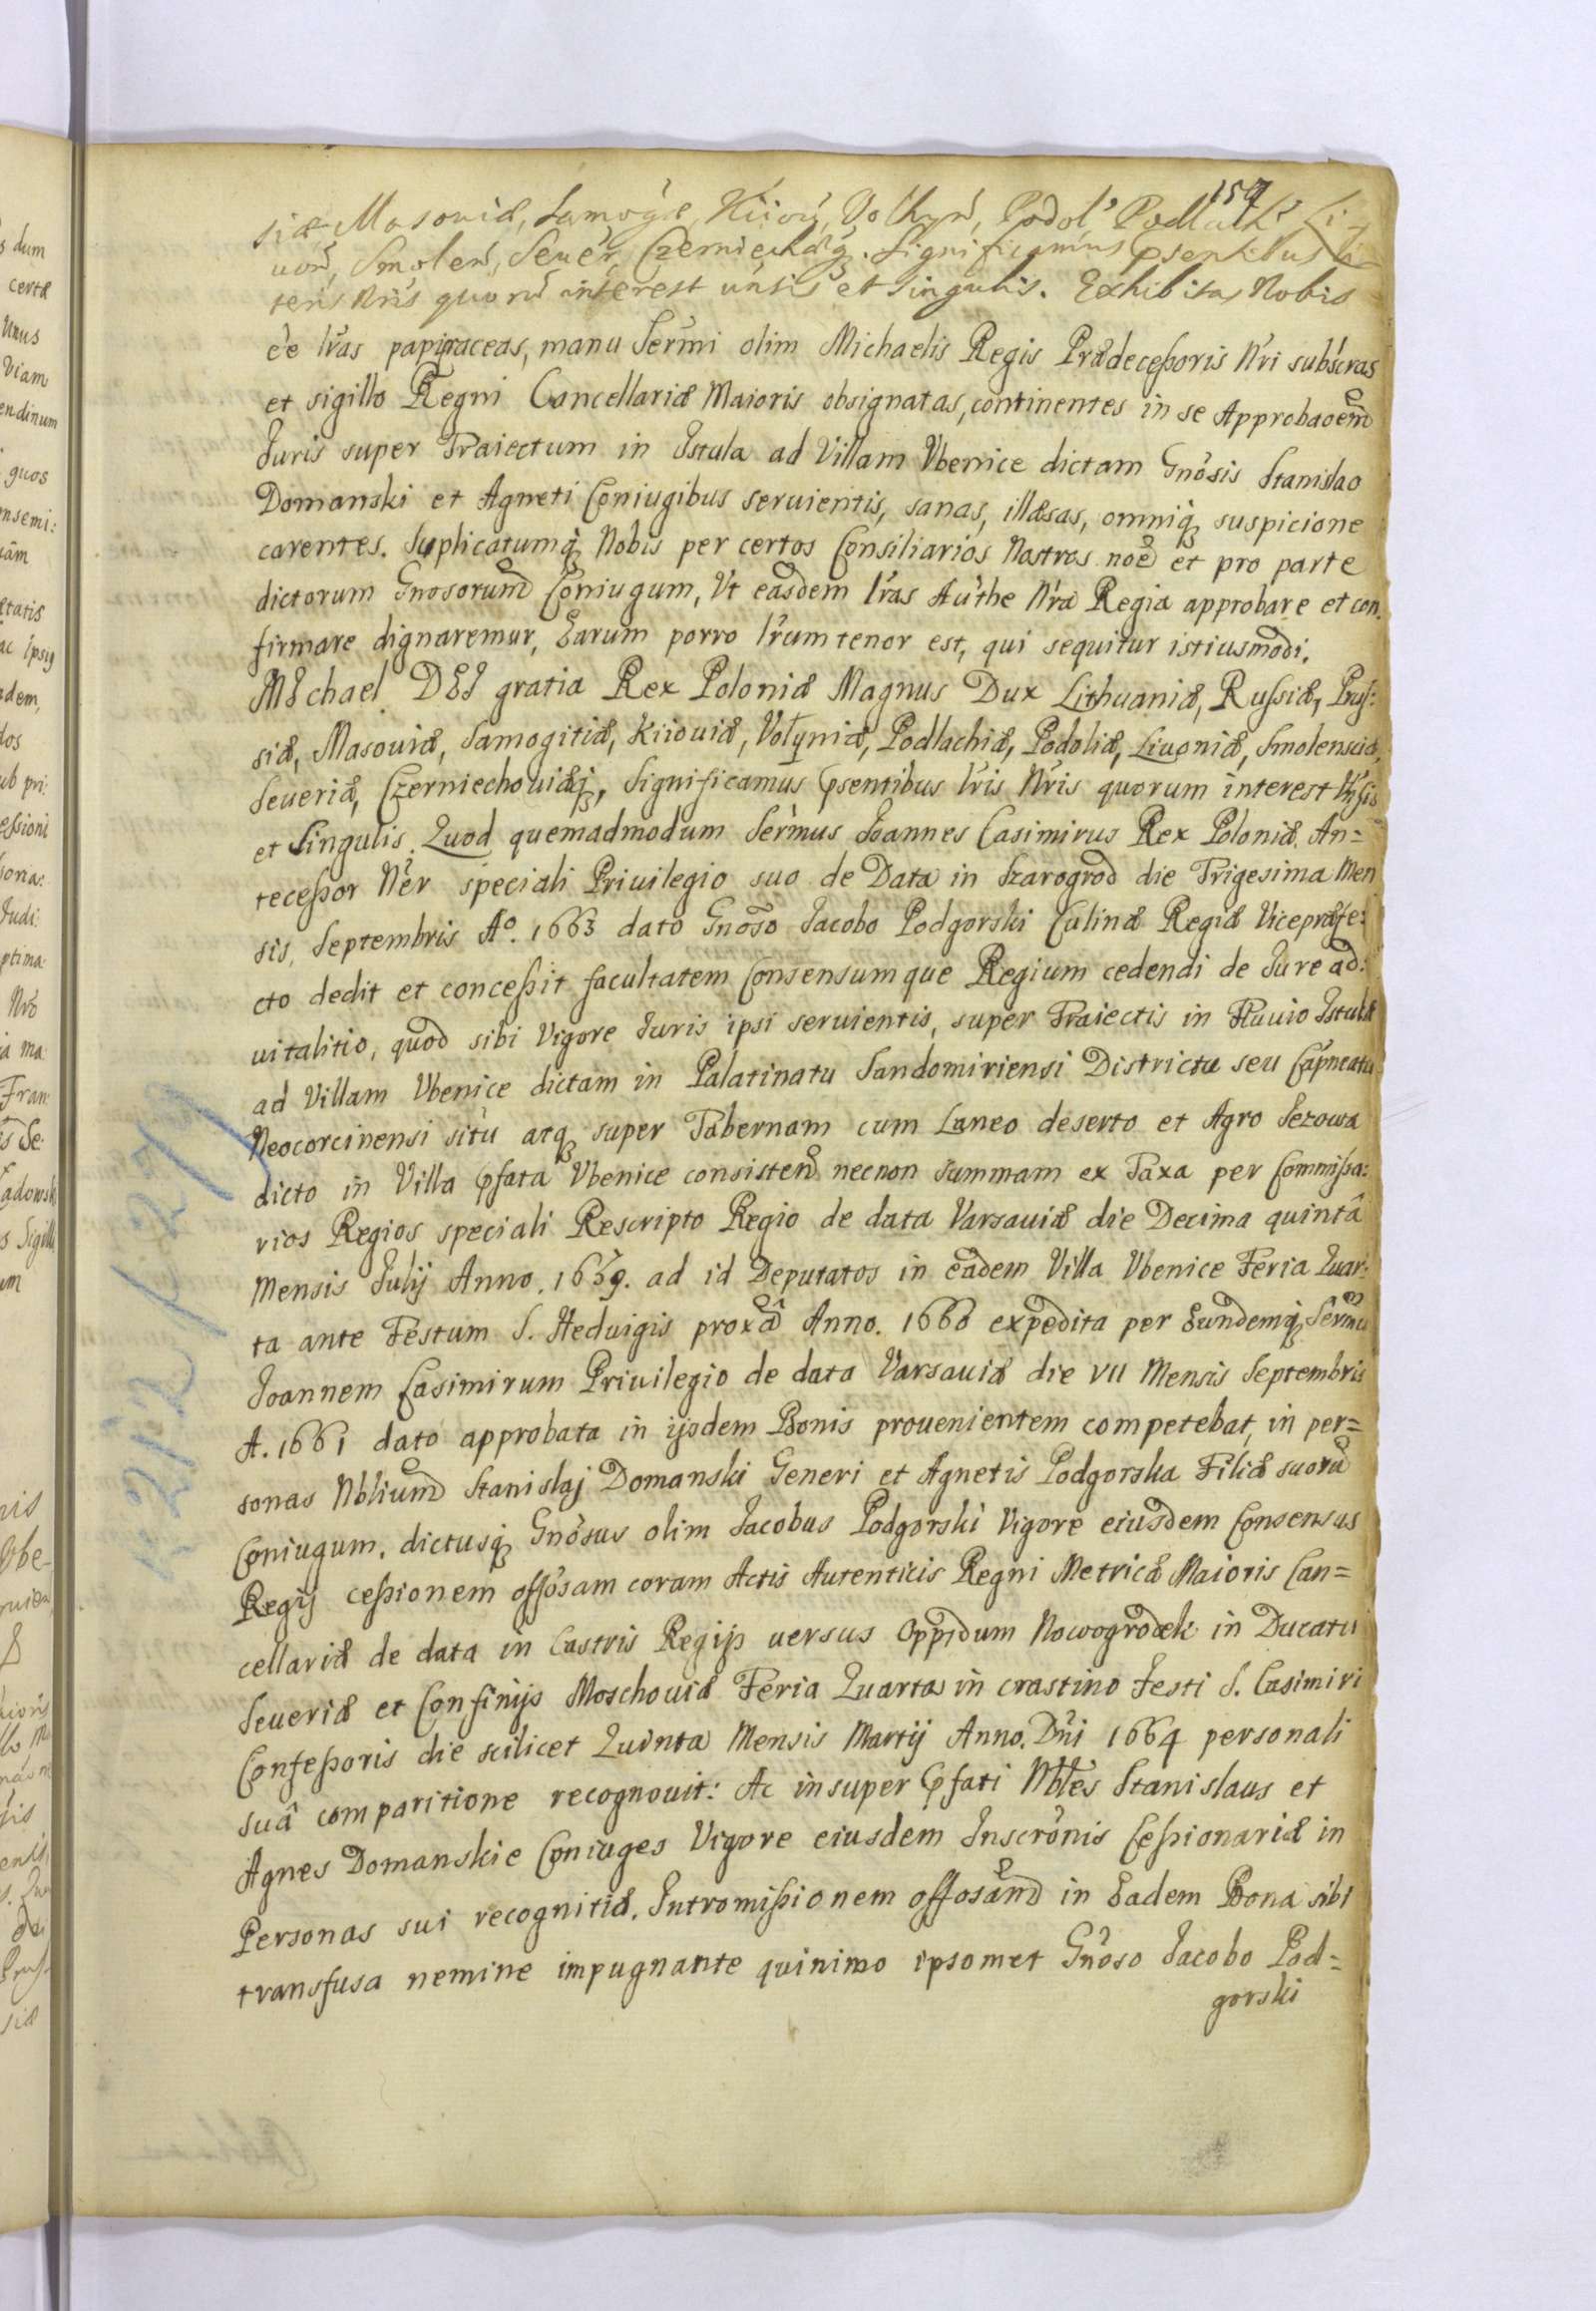 157
siæ Masoviæ, Samogiæ, Kiiov, Volhyn, Podol, Podlach, Li-
von, Smolen, Sever, Czerniechæq. Significamus psentibus li-
teris Nris quorũ interest unsis et singulis. Exhibitas Nobis
ee lras papiraceas, manu Sermi olim Michaelis Regis Prædecessoris Nri subscras
et sigillo Regni Cancellariæ Maioris obsignatas, continentes in se Approbaoem
Juris super Traiectum in Istula ad Villam Vbenice dictam Gnosis Stanislao
Domanski et Agneti Coniugibus seruientis, sanas, illæsas, omniq suspicione
carentes. Suplicatumq Nobis per certos Consiliarios Nostros noe et pro parte
dictorum Gnosorum Coniugum, Vt easdem lras Authe Nra Regia approbare et con
firmare dignaremur, Earum porro lrum tenor est, qui sequitur istiusmodi.
MIchael DEI gratia Rex Poloniæ Magnus Dux Lithuaniæ, Russiæ, Prus:
siæ, Masouiæ, Samogitiæ, Kiiouiæ, Volyniæ, Podlachiæ, Podoliæ, Liuoniæ, Smolensciæ,
Seueriæ, Czerniechouiæq, Significamus psentibus lris Nris quorum interest Vnsis
et Singulis. Quod quemadmodum Sermus Joannes Casimirus Rex Poloniæ. An=
tecessor Ner speciali Priuilegio suo de Data in Szarogrod die Trigesima Men
sis, Septembris Aº. 1663 dato Gnoso Jacobo Podgorski Culinæ Regiæ Vicepræfe:
cto dedit et concessit facultatem Consensumque Regium cedendi de Jure ad:
uitalitio, quod sibi Vigore Juris ipsi seruientis, super Traiectis in Fluuio Istula
ad Villam Vbenice dictam in Palatinatu Sandomiriensi Districtu seu Capneatu
Neocorcinensi situ atq super Tabernam cum Laneo deserto et Agro Jezowa
dicto in Villa pfata Vbenice consisten necnon summam ex Taxa per Commissa:
rios Regios speciali Rescripto Regio de data Varsauiæ die Decima quintâ
Mensis Julij Anno. 1659. ad id Deputatos in eadem Villa Vbenice Feria Quar:
ta ante Festum S. Hedvigis proxa Anno. 1660 expedita per Eundemq Sermu
Joannem Casimirum Priuilegio de data Varsauiæ die VII Mensis Septembris
A. 1661 dato approbata in ijsdem Bonis prouenientem competebat, in per=
sonas Nblium Stanislaj Domanski Generi et Agnetis Podgorska Filiæ suorũ
Coniugum. dictusq Gnosus olim Jacobus Podgorski Vigore eiusdem Consensus
Regij cessionem offosam coram Actis Autenticis Regni Metricæ Maioris Can=
cellariæ de data in Castris Regijs uersus Oppidum Nowogrodek in Ducatu
Seueriæ et Confinijs Moschouiæ Feria Quarta in crastino Festi S. Casimiri
Confessoris die scilicet Quinta Mensis Martij Anno. Dni 1664 personali
suâ comparitione recognouit: Ac insuper pfati Nbles Stanislaus et
Agnes Domanskie Coniuges Vigore eiusdem Inscronis Cessionariæ in
Personas sui recognitiæ. Intromissionem offosand in Eadem Bona sibi
transfusa nemine impugnante quinimo ipsomet Gnoso Jacobo Pod=
gorski